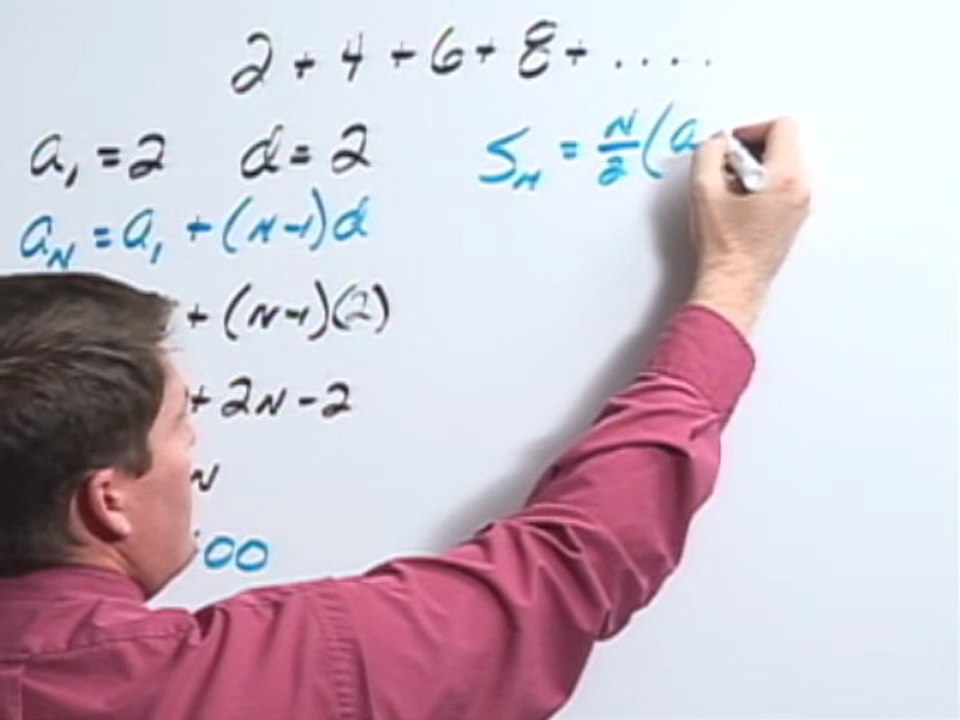 2 + 4 + 6 + 8 + ....
a₁ = 2 d = 2 Sₙ = N/2 (a
aₙ = a₁ + (N-1)d
+ (N-1)(2)
+ 2N - 2
N
00